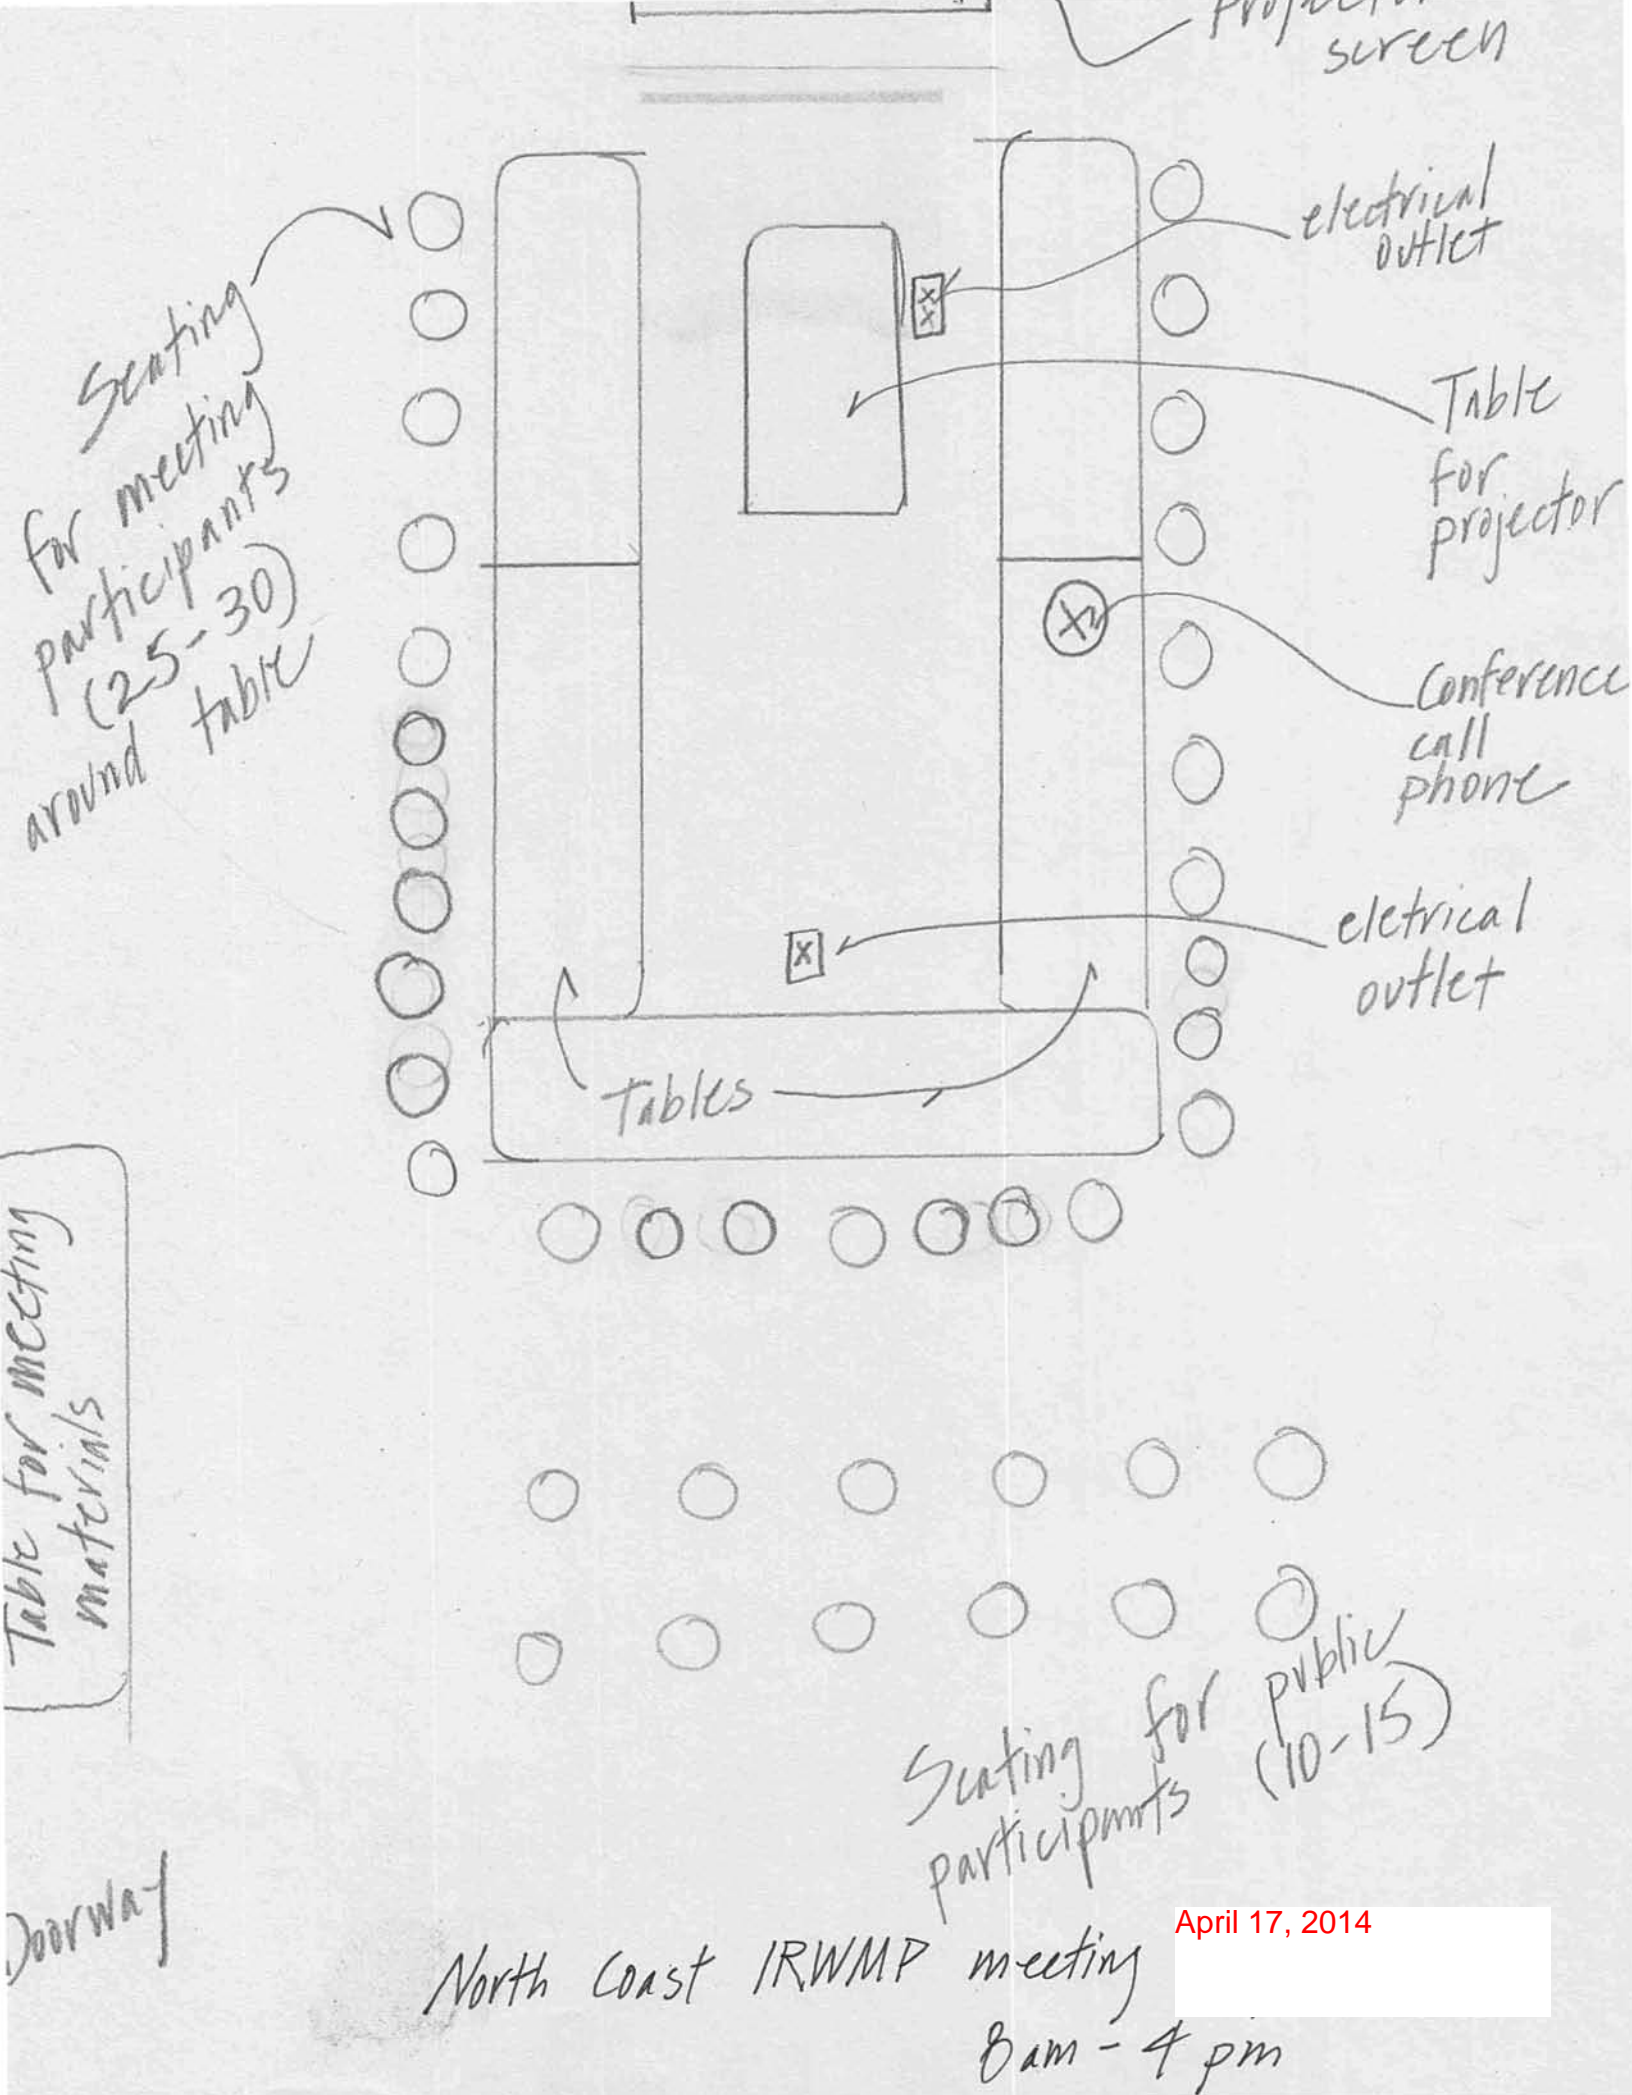 Projector
screen
electrical
outlet
Seating
for meeting
participants
(25-30)
around table
Table
for
projector
Conference
call
phone
eletrical
outlet
Tables
Table for meeting
materials
Seating for public
participants (10-15)
Doorway
April 17, 2014
North Coast IRWMP meeting
8am - 4 pm